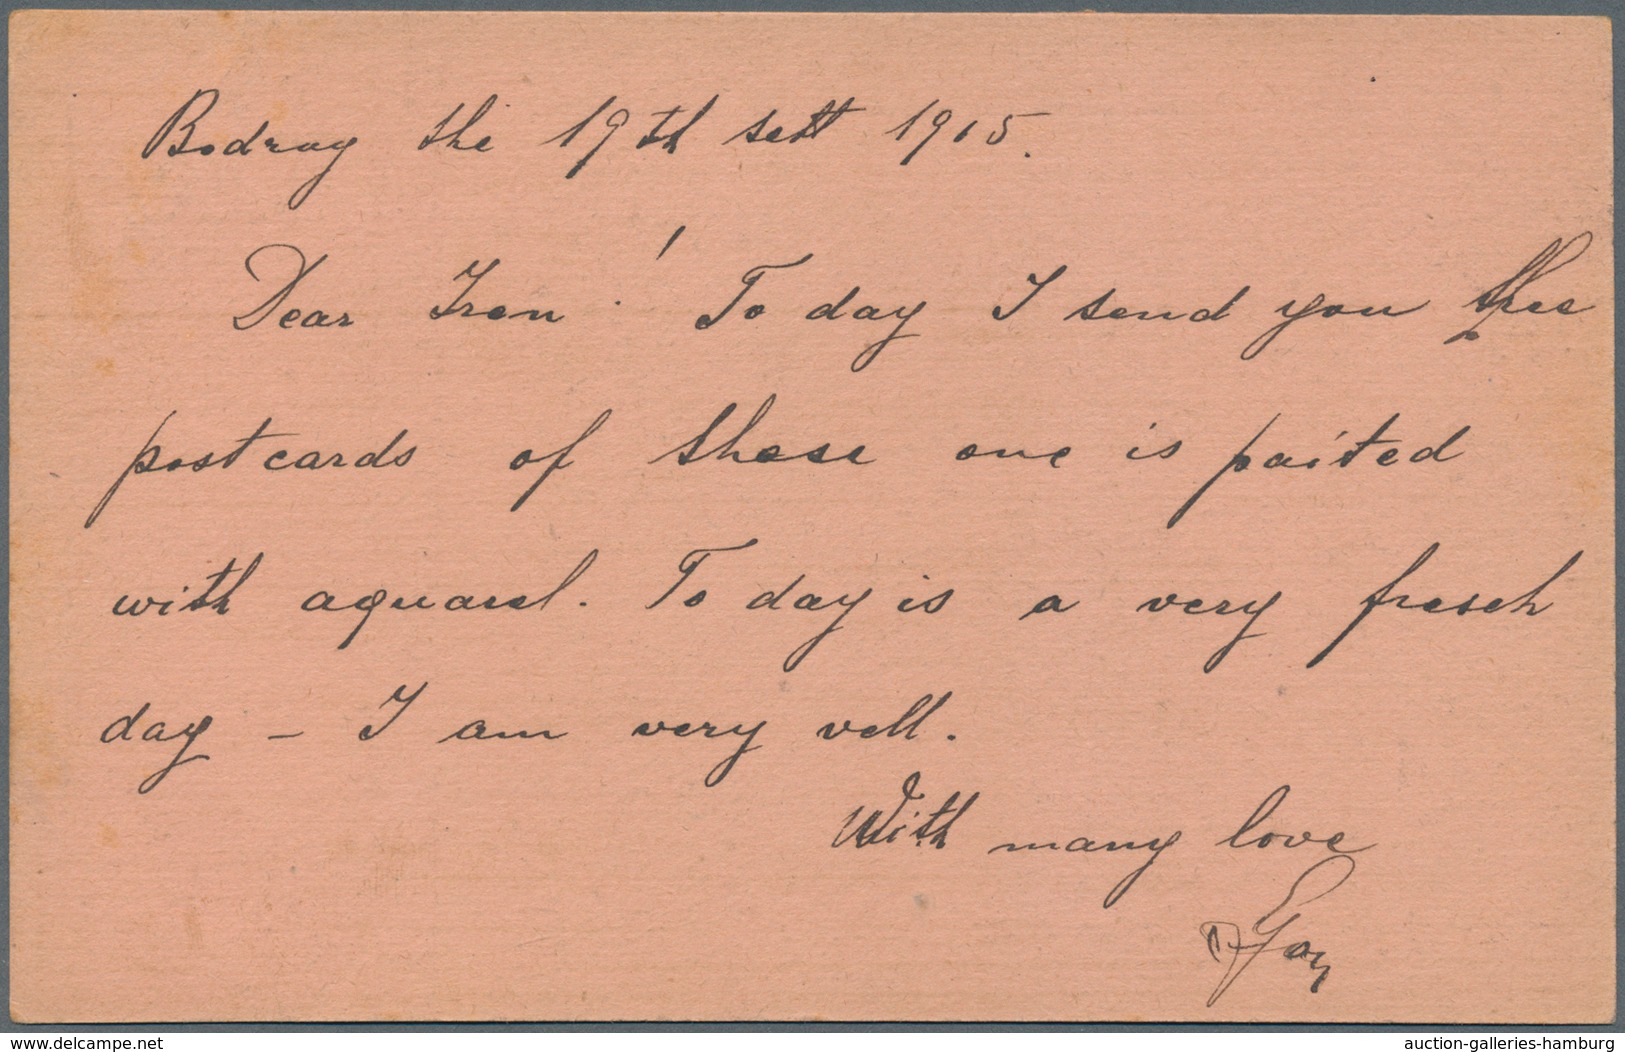 Bodrog the 19th sett 1915.
Dear Iren! To day I send you thee
postcards of these one is paited
with aquarel. To day is a very fresch
day - I am very vell.
With many love
www.delcampe.net
auction-galleries-hamburg